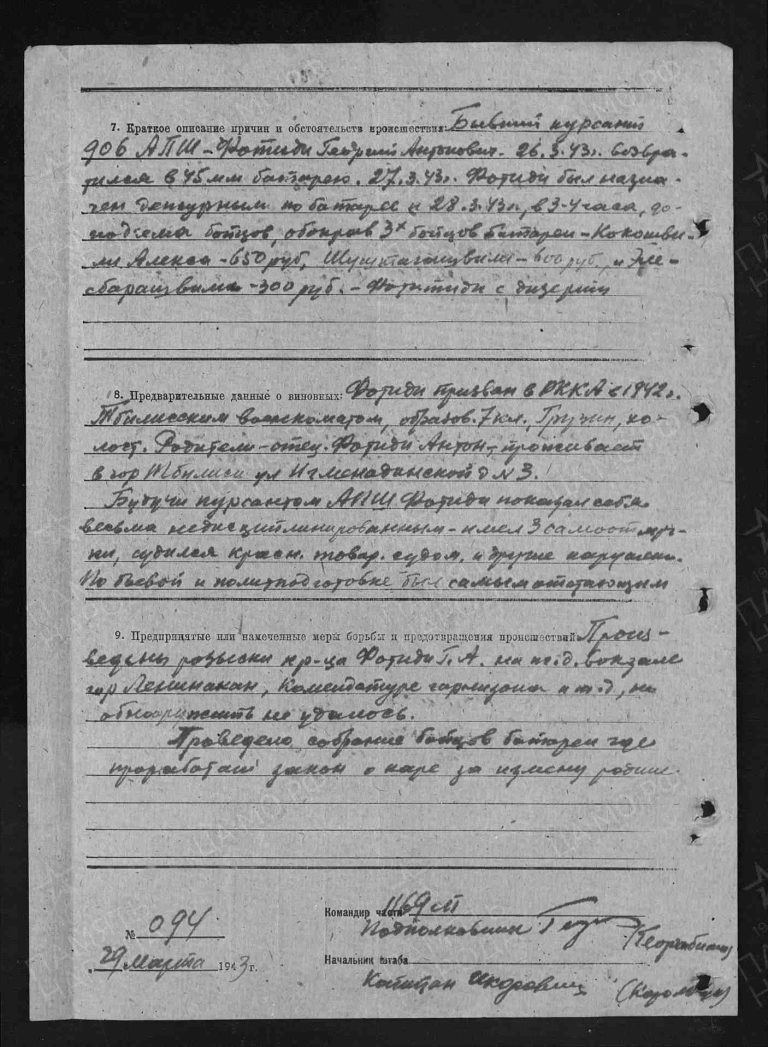 7. Краткое описание причин и обстоятельств происшествия: Бывший курсант
906 АПШ - Фотиди Георгий Антонович. 26.3.43г. возвра-
тился в 45мм батарею. 27.3.43г. Фотиди был назна-
чен дежурным по батарее и 28.3.43г., в 3-4 часа, до
подъема бойцов, обокрав 3х бойцов батареи - Кокошви-
ли Алекса - 650 руб, - 600 руб., и
- 300 руб. - Фотиди с
8. Предварительные данные о виновных: Фотиди призван в РККА с 1942г.
Тбилисским военкоматом, образов. 7 кл. Грузин, хо-
лост. Родители - отец Фотиди Антон, - проживает
в гор Тбилиси ул д N 3.
Будучи курсантом АПШ Фотиди показал себя
весьма недисциплинированным - имел 3 самоотлуч-
ки, судился красн. товар. судом, и другие нарушени.
По боевой и политподготовке был самым отстающим
9. Предпринятые или намеченные меры борьбы и предотвращения происшествий: Произ-
ведены розыски кр-ца Фотиди Г.А. на ж.д. вокзале
гор Ленинакан, Комендатуре гарнизона и т.д., но
обнаружить не удалось.
Проведено собрание бойцов батареи где
проработан закон о каре за измену родине.
Командир части 1169 сп
Подполковник
№ 094
29 марта 1943 г.
Начальник штаба
Капитан